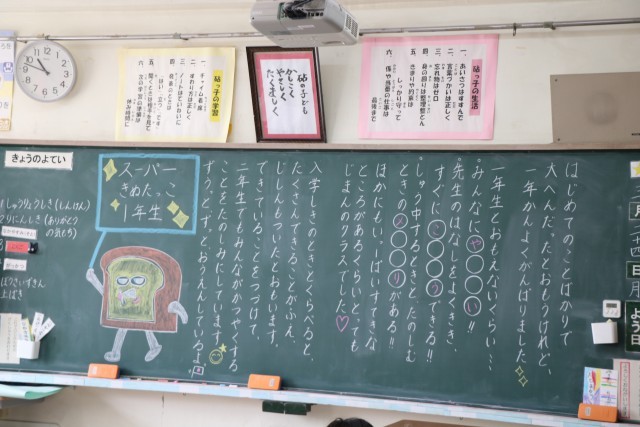 砧っ子の生活
一、あいさつはすすんで
二、言葉づかいは正しく
三、忘れ物はゼロ
四、身の回りは整理整とん
五、きまりや約束は
しっかり守って
六、係や当番の仕事は
最後まで
砧の子ども
かしこく
やさしく
たくましく
砧っ子の学習
一、チャイム着席
二、すわり方は正しく
三、ノートはていねいに
五、聞くときは相手を見て
六、次の学習の準備は
休み時間に
はじめてのことばかりで
大へんだったとおもうけれど、
一年かんよくがんばりました。
一年生とおもえないくらい…
みんなに や○○○い!!
先生のはなしをよくきき、
すぐに こ○○○う できる!!
しゅう中するときと、たのしむ
ときの メ○○リ がある!!
ほかにもい〜ぱいすてきな
ところがあるくらい、とても
じまんのクラスでした♡
入学しきのときとくらべると、
たくさんできることがふえ、
じしんもついたとおもいます。
できていることをつづけて、
二年生でもみんながかつやくする
ことをたのしみにしています。
ず〜っとず〜っとおうえんしているよ。
スーパー
きぬたっこ
1年生
きょうのよてい
1しゅうりょうしき(しんけん)
2りにんしき(ありがとう
の気もち)
ぼうさいずきん
上ばき
月
日